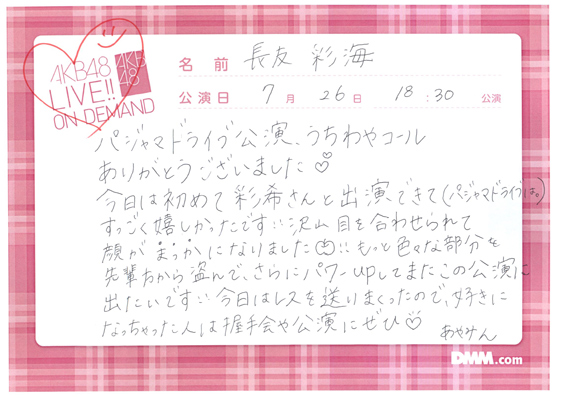 AKB48
LIVE!!
ON DEMAND
AKB
48
名前 長友 彩海
公演日 7月 26日 18:30 公演
パジャマドライブ公演、うちわやコール
ありがとうございました♡
今日は初めて彩希さんと出演できて(パジャマドライブは。)
すっごく嬉しかったです!! 沢山目を合わせられて
顔がまっかになりました!! もっと色々な部分を
先輩方から盗んで、さらにパワーupしてまたこの公演に
出たいです!! 今日はレスを送りまくったので、好きに
なっちゃった人は握手会や公演にぜひ♡
あやみん
DMM.com